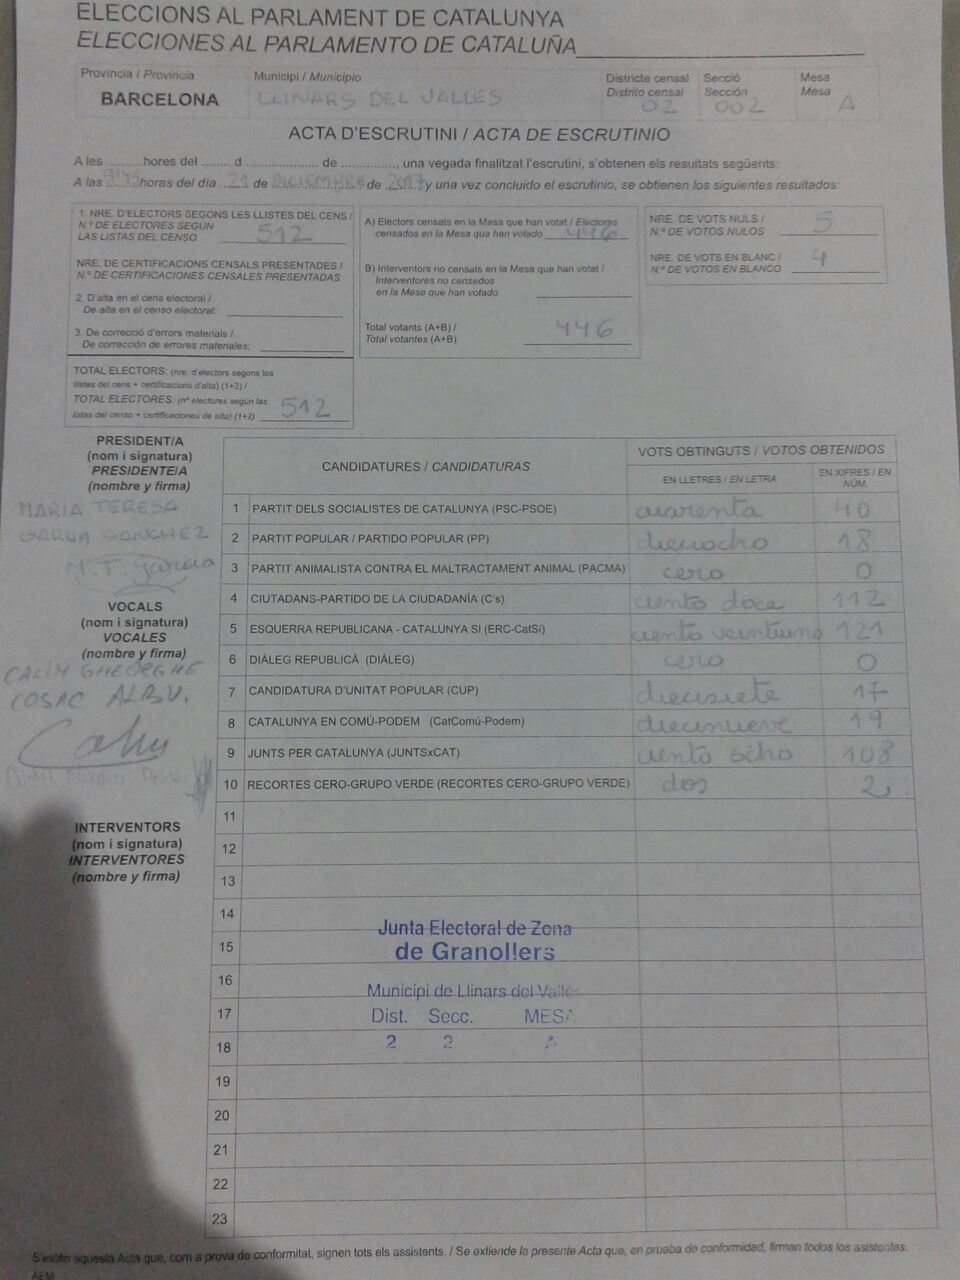 ELECCIONS AL PARLAMENT DE CATALUNYA
ELECCIONES AL PARLAMENTO DE CATALUÑA
Província / Provincia
BARCELONA
Municipi / Municipio
LLINARS DEL VALLES
Districte censal
Distrito censal
02
Secció
Sección
002
Mesa
Mesa
A
ACTA D'ESCRUTINI / ACTA DE ESCRUTINIO
A les ..........hores del ........ d .................... de ..............., una vegada finalitzat l'escrutini, s'obtenen els resultats següents:
A las 9'45 horas del día 21 de DICIEMBRE de 2017 y una vez concluido el escrutinio, se obtienen los siguientes resultados:
1. NRE. D'ELECTORS SEGONS LES LLISTES DEL CENS /
N.º DE ELECTORES SEGÚN
LAS LISTAS DEL CENSO 512
NRE. DE CERTIFICACIONS CENSALS PRESENTADES /
N.º DE CERTIFICACIONES CENSALES PRESENTADAS
2. D'alta en el cens electoral /
De alta en el censo electoral:
3. De correcció d'errors materials /
De corrección de errores materiales:
TOTAL ELECTORS: (nre. d'electors segons les
llistes del cens + certificacions d'alta) (1+2) /
TOTAL ELECTORES: (nº electores según las
listas del censo + certificaciones de alta) (1+2) 512
A) Electors censals en la Mesa que han votat / Electores
censados en la Mesa que han votado 446
B) Interventors no censats en la Mesa que han votat /
Interventores no censados
en la Mesa que han votado
Total votants (A+B) /
Total votantes (A+B) 446
NRE. DE VOTS NULS /
N.º DE VOTOS NULOS 5
NRE. DE VOTS EN BLANC /
N.º DE VOTOS EN BLANCO 4
PRESIDENT/A
(nom i signatura)
PRESIDENTE/A
(nombre y firma)
MARIA TERESA
GARCIA SANCHEZ
M.T. García
VOCALS
(nom i signatura)
VOCALES
(nombre y firma)
CALIN GHEORGHE
COSAC ALBU.
INTERVENTORS
(nom i signatura)
INTERVENTORES
(nombre y firma)
CANDIDATURES / CANDIDATURAS
VOTS OBTINGUTS / VOTOS OBTENIDOS
EN LLETRES / EN LETRA
EN XIFRES / EN
NÚM.
1 PARTIT DELS SOCIALISTES DE CATALUNYA (PSC-PSOE) cuarenta 40
2 PARTIT POPULAR / PARTIDO POPULAR (PP) dieciocho 18
3 PARTIT ANIMALISTA CONTRA EL MALTRACTAMENT ANIMAL (PACMA) cero 0
4 CIUTADANS-PARTIDO DE LA CIUDADANÍA (C's) ciento doce 112
5 ESQUERRA REPUBLICANA - CATALUNYA SI (ERC-CatSí) ciento veintiuno 121
6 DIÀLEG REPUBLICÀ (DIÀLEG) cero 0
7 CANDIDATURA D'UNITAT POPULAR (CUP) diecisiete 17
8 CATALUNYA EN COMÚ-PODEM (CatComú-Podem) diecinueve 19
9 JUNTS PER CATALUNYA (JUNTSxCAT) ciento ocho 108
10 RECORTES CERO-GRUPO VERDE (RECORTES CERO-GRUPO VERDE) dos 2
11
12
13
14
15
16
17
18
19
20
21
22
23
Junta Electoral de Zona
de Granollers
Municipi de Llinars del Valles
Dist. Secc. MESA
2 2 A
S'estén aquesta Acta que, com a prova de conformitat, signen tots els assistents. / Se extiende la presente Acta que, en prueba de conformidad, firman todos los asistentes.